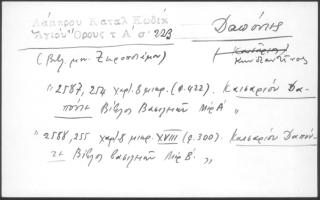 Λάμπρου Καταλ Κωδίκ Δαπόντες
Ἁγίου Ὄρους τ Α' σ. 223
(Βιβλ. μον. Ξηροποτάμου) Κωνσταντῖνος
" 2587, 254 χαρ. 8 μικρ. (φ. 422). Καισαρίου Δα-
πόντε Βίβλος Βασιλειῶν Μέρ Α'
" 2588, 255 χαρ. 8 μικρ. XVIII (φ. 300). Καισαρίου Δαπόν-
τε Βίβλος βασιλειῶν Μέρ Β'. "